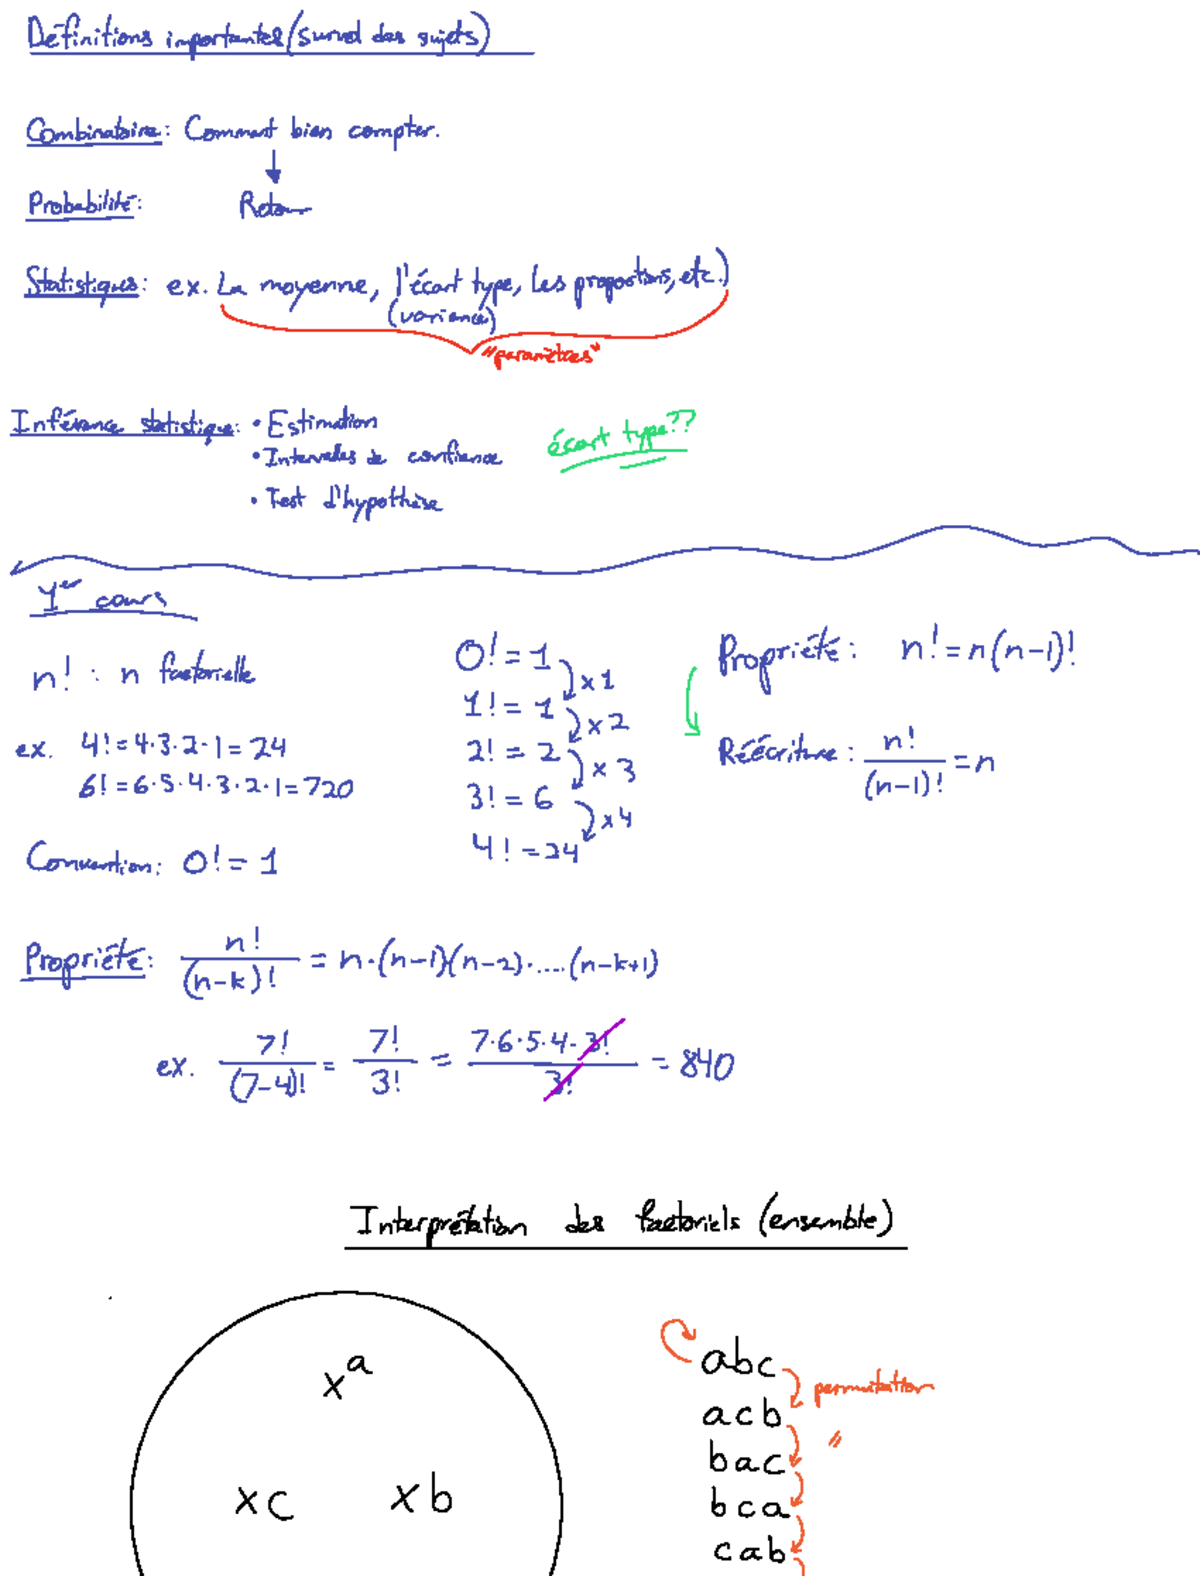 Définitions importantes (survol des sujets)
Combinatoire: Comment bien compter.
Probabilité: Retour
Statistiques: ex. La moyenne, l'écart type, les proportions, etc.)
(variance)
"paramètres"
Inférence statistique: • Estimation
• Intervalles de confiance
• Test d'hypothèse
écart type??
1er cours
n! : n factorielle
ex. 4! = 4·3·2·1 = 24
6! = 6·5·4·3·2·1 = 720
Convention: 0! = 1
0! = 1
x1
1! = 1
x2
2! = 2
x3
3! = 6
x4
4! = 24
Propriété: n! = n(n-1)!
Réécriture: n!/(n-1)! = n
Propriété: n!/(n-k)! = n·(n-1)(n-2)·....(n-k+1)
ex. 7!/(7-4)! = 7!/3! = 7·6·5·4·3!/3! = 840
Interprétation des factoriels (ensemble)
x a
x c x b
abc
permutation
acb
"
bac
bca
cab